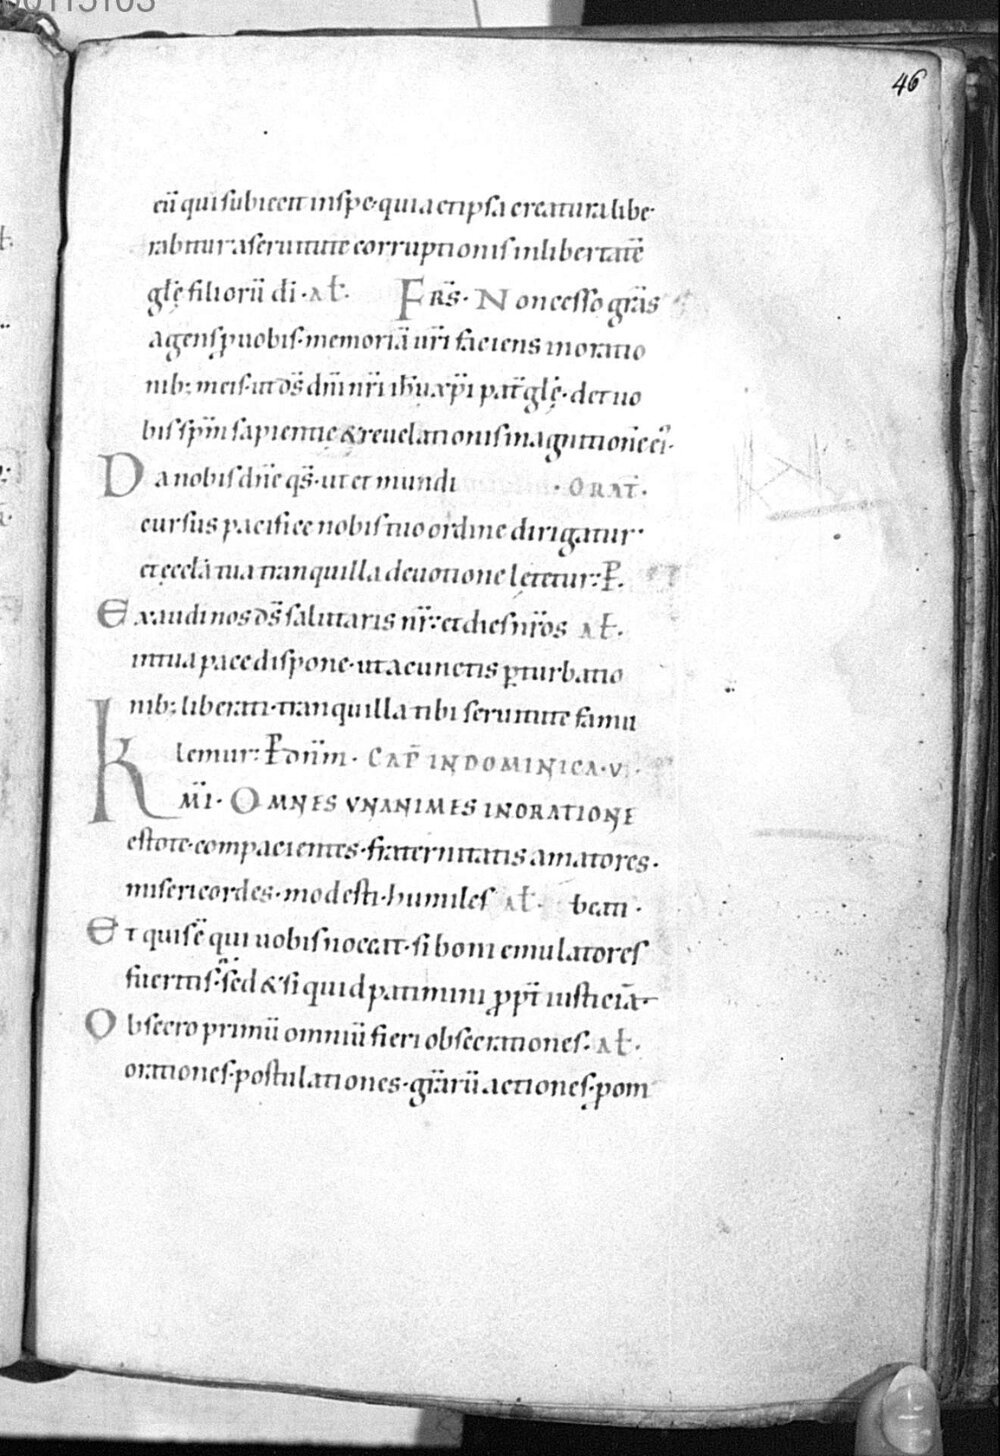 00115103
46
eū qui subiecit in spe· quia et ipsa creatura libe
rabitur a seruitute corruptionis in libertatē
glę̄ filiorū dī· Aƚ. FRS̄· Non cesso grā̄s
agens ꝑ uobis· memoriā ūri faciens in oratio
nib; meis· ut d̄s dn̄i nr̄i ih̄u xp̄i pat̄ glę̄· det uo
bis spm̄ sapientię & reuelationis in agnitionē ei᾽·
Da nobis dn̄e qs̄· ut et mundi ·ORAT̄·
cursus pacifice nobis tuo ordine dirigatur·
et ęcclā tua tranquilla deuotione lętetur: P̄.
Exaudi nos d̄s salutaris nr̄: et dies nr̄os Aƚ.
in tua pace dispone· ut a cunctis ꝑturbatio
nib; liberati· tranquilla tibi seruitute famu
lemur: P̄ dn̄m· CAP̄ IN DOMINICA· V·
K̄MI· OMNES VNANIMES IN ORATIONE
estote· compacientes· fraternitatis amatores·
misericordes· modesti· humiles Aƚ· beati·
Et quis ē qui uobis noceat· si boni emulatores
fueritis· sed & si quid patimini ꝓpt̄ iusticiā·
Obsecro primū omniū fieri obsecrationes· Aƚ·
orationes· postulationes· grā̄rū actiones· ꝓ om